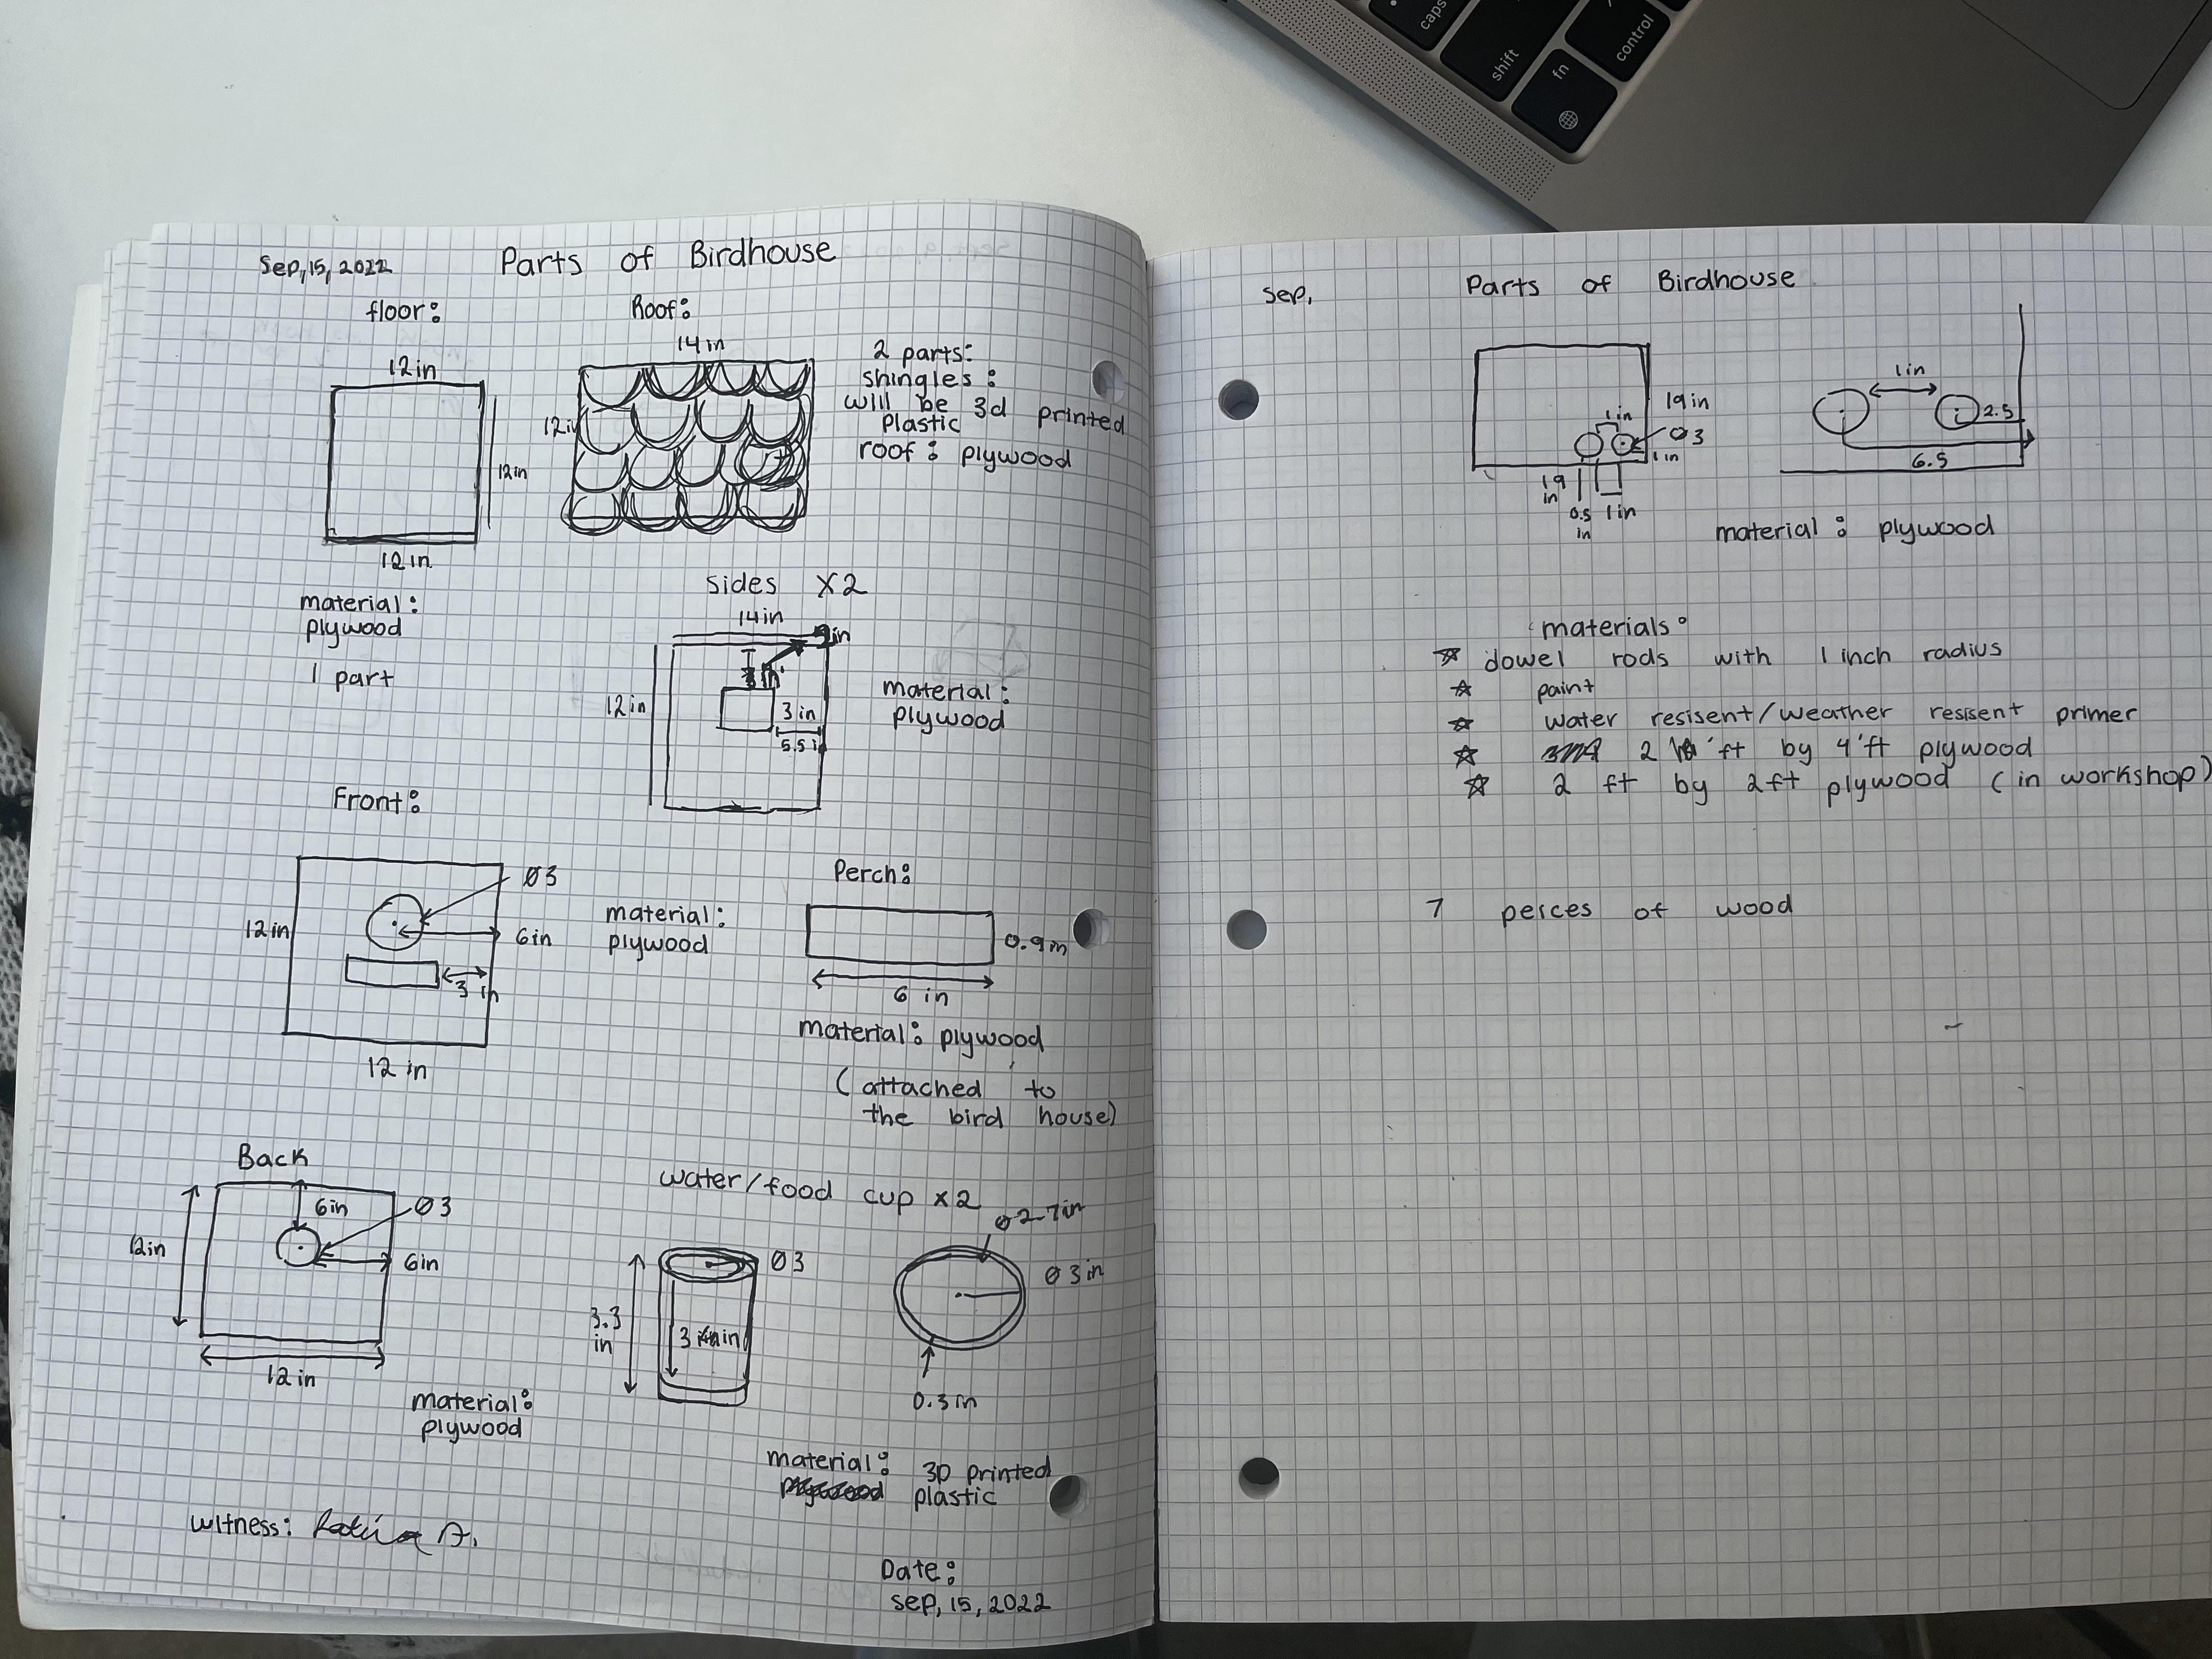 caps
shift
fn
control
Sep, 15, 2022
Parts of Birdhouse
floor:
12in
12in
12in
material:
plywood
1 part
Roof:
14in
12in
2 parts:
shingles:
will be 3d printed
plastic
roof: plywood
sides X2
14in
in
12in
3 in
5.5 in
material:
plywood
Front:
Ø3
12in
6in
3 in
12 in
material:
plywood
Perch:
0.9in
6 in
material: plywood
(attached to
the bird house)
Back
6in
Ø3
12in
6in
12in
material:
plywood
water/food cup x2
Ø3
3.3
in
3 in
Ø2.7in
Ø3in
0.3in
material: 3D printed
plastic
witness:
Date:
sep, 15, 2022
Sep,
Parts of Birdhouse
1in
19in
Ø3
1in
19
in
0.5
in
1in
1in
2.5
6.5
material: plywood
materials:
☆ dowel rods with 1 inch radius
☆ paint
☆ water resisent/weather resisent primer
☆ 2 'ft by 4'ft plywood
☆ 2 ft by 2ft plywood (in workshop)
7 peices of wood